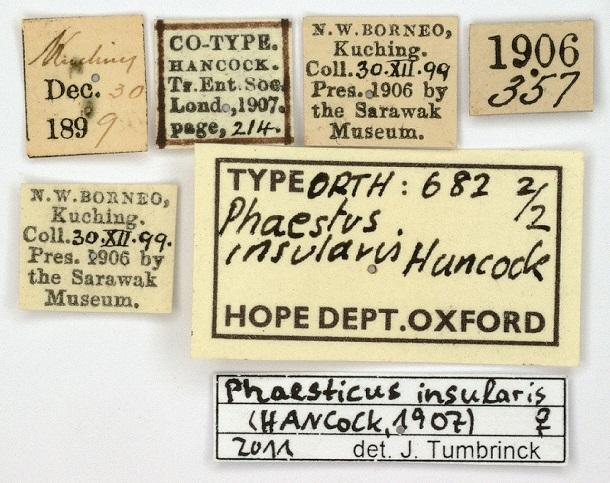 Kuching
Dec. 30
1899
CO-TYPE.
HANCOCK.
Tr. Ent. Soc.
Lond., 1907.
page, 214.
N.W. BORNEO,
Kuching.
Coll. 30.XII.99
Pres. 1906 by
the Sarawak
Museum.
1906
357
N.W. BORNEO,
Kuching.
Coll. 30.XII.99.
Pres. 1906 by
the Sarawak
Museum.
TYPE ORTH: 682 2/2
Phaestus
insularis Hancock
HOPE DEPT. OXFORD
Phaesticus insularis
(HANCOCK, 1907) ♀
2011 det. J. Tumbrinck